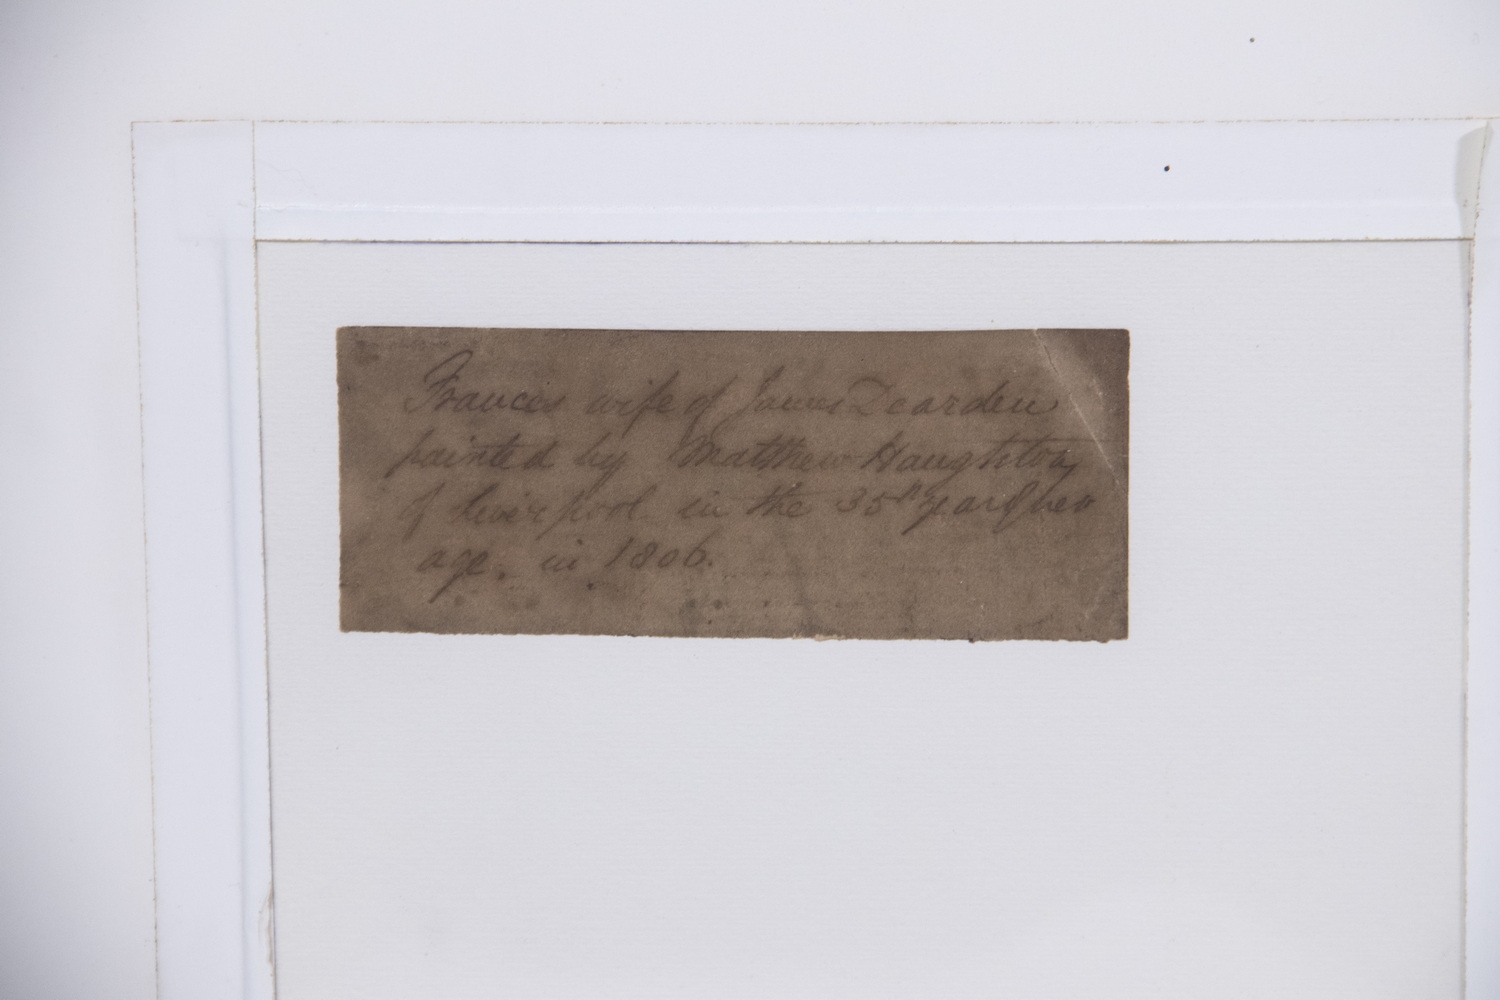 Frances wife of James Dearden
painted by Matthew Haughton
of Liverpool in the 35th year of her
age, in 1806.